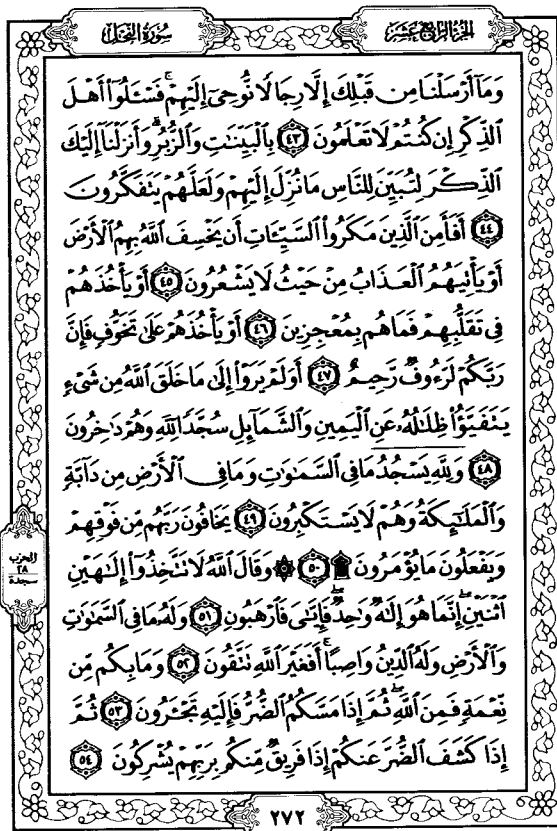 سُورَةُ النَّحْلِ
الجزء الرابع عشر
وَمَآ أَرْسَلْنَا مِن قَبْلِكَ إِلَّا رِجَالًا نُّوحِىٓ إِلَيْهِمْ ۚ فَسْـَٔلُوٓا۟ أَهْلَ
ٱلذِّكْرِ إِن كُنتُمْ لَا تَعْلَمُونَ ٤٣ بِٱلْبَيِّنَـٰتِ وَٱلزُّبُرِ ۗ وَأَنزَلْنَآ إِلَيْكَ
ٱلذِّكْرَ لِتُبَيِّنَ لِلنَّاسِ مَا نُزِّلَ إِلَيْهِمْ وَلَعَلَّهُمْ يَتَفَكَّرُونَ
٤٤ أَفَأَمِنَ ٱلَّذِينَ مَكَرُوا۟ ٱلسَّيِّـَٔاتِ أَن يَخْسِفَ ٱللَّهُ بِهِمُ ٱلْأَرْضَ
أَوْ يَأْتِيَهُمُ ٱلْعَذَابُ مِنْ حَيْثُ لَا يَشْعُرُونَ ٤٥ أَوْ يَأْخُذَهُمْ
فِى تَقَلُّبِهِمْ فَمَا هُم بِمُعْجِزِينَ ٤٦ أَوْ يَأْخُذَهُمْ عَلَىٰ تَخَوُّفٍ فَإِنَّ
رَبَّكُمْ لَرَءُوفٌ رَّحِيمٌ ٤٧ أَوَلَمْ يَرَوْا۟ إِلَىٰ مَا خَلَقَ ٱللَّهُ مِن شَىْءٍ
يَتَفَيَّؤُا۟ ظِلَـٰلُهُۥ عَنِ ٱلْيَمِينِ وَٱلشَّمَآئِلِ سُجَّدًا لِّلَّهِ وَهُمْ دَٰخِرُونَ
٤٨ وَلِلَّهِ يَسْجُدُ مَا فِى ٱلسَّمَـٰوَٰتِ وَمَا فِى ٱلْأَرْضِ مِن دَآبَّةٍ
وَٱلْمَلَـٰٓئِكَةُ وَهُمْ لَا يَسْتَكْبِرُونَ ٤٩ يَخَافُونَ رَبَّهُم مِّن فَوْقِهِمْ
وَيَفْعَلُونَ مَا يُؤْمَرُونَ ۩ ٥٠ ۞ وَقَالَ ٱللَّهُ لَا تَتَّخِذُوٓا۟ إِلَـٰهَيْنِ
ٱثْنَيْنِ ۖ إِنَّمَا هُوَ إِلَـٰهٌ وَٰحِدٌ ۖ فَإِيَّـٰىَ فَٱرْهَبُونِ ٥١ وَلَهُۥ مَا فِى ٱلسَّمَـٰوَٰتِ
وَٱلْأَرْضِ وَلَهُ ٱلدِّينُ وَاصِبًا ۚ أَفَغَيْرَ ٱللَّهِ تَتَّقُونَ ٥٢ وَمَا بِكُم مِّن
نِّعْمَةٍ فَمِنَ ٱللَّهِ ۖ ثُمَّ إِذَا مَسَّكُمُ ٱلضُّرُّ فَإِلَيْهِ تَجْـَٔرُونَ ٥٣ ثُمَّ
إِذَا كَشَفَ ٱلضُّرَّ عَنكُمْ إِذَا فَرِيقٌ مِّنكُم بِرَبِّهِمْ يُشْرِكُونَ ٥٤
الحزب
٢٨
سجدة
٢٧٢